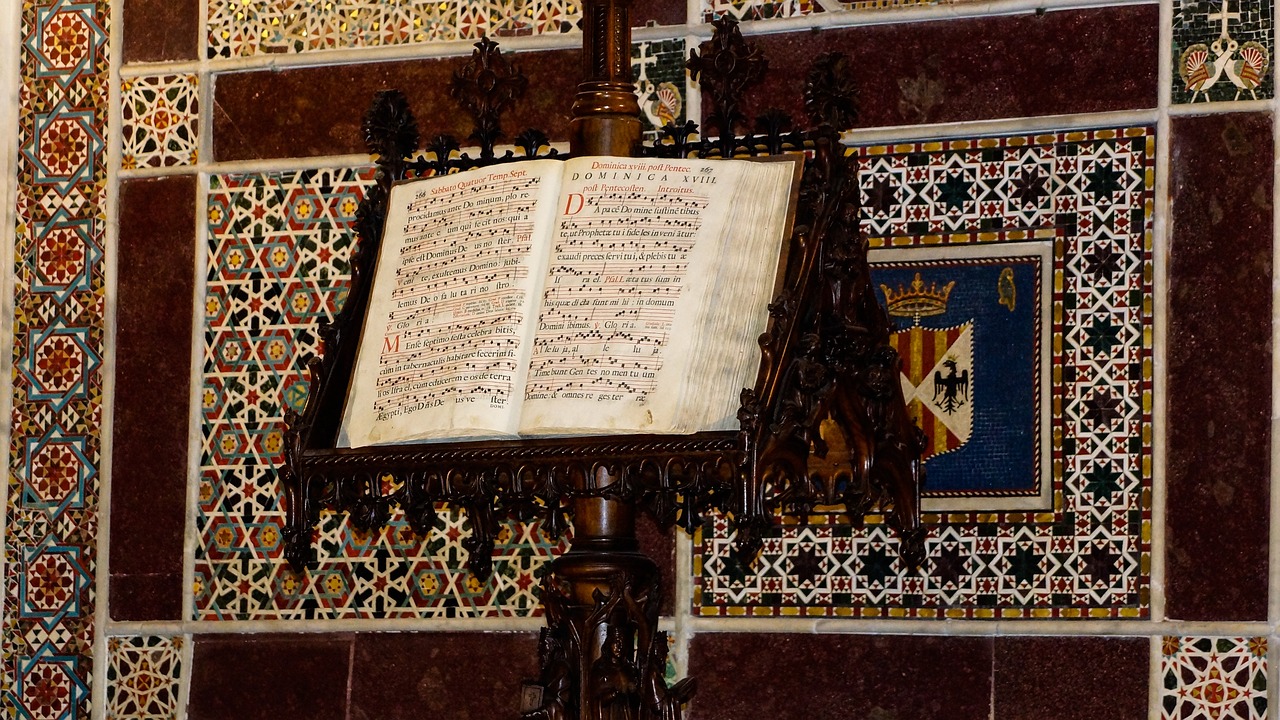 266 Sabbato Quatuor Temp. Sept.
procidamus ante Do minum, plo re-
mus ante e um qui fe cit nos: qui a
ipse est Dominus De us no ster. Psal.
Veni te, exultemus Domino jubi-
lemus De o sa lu ta ri no stro.
Glo ri a
MEnse septimo festa celebra bitis,
cum in tabernaculis habitare fecerim fi-
lios Isra el, cum educerem e os de terra
Ægypti, Ego Dñs De us ve ster.
DOMI-
Dominica xviii. post Pentec. 267
DOMINICA XVIII.
post Pentecosten. Introitus.
DA pa cē Do mine sustinē tibus
te, ut Prophetæ tu i fide les in veni ātur:
exaudi preces servi tu i, & plebis tu æ
If ra el. Psal. Læ tatus sum in
his quæ di cta sunt mi hi: in domum
Domini ibimus. ℣. Glo ri a.
Al le lu ja, al le lu ja.
Timebunt Gen tes no men tu um
Domine: & omnes re ges ter ræ